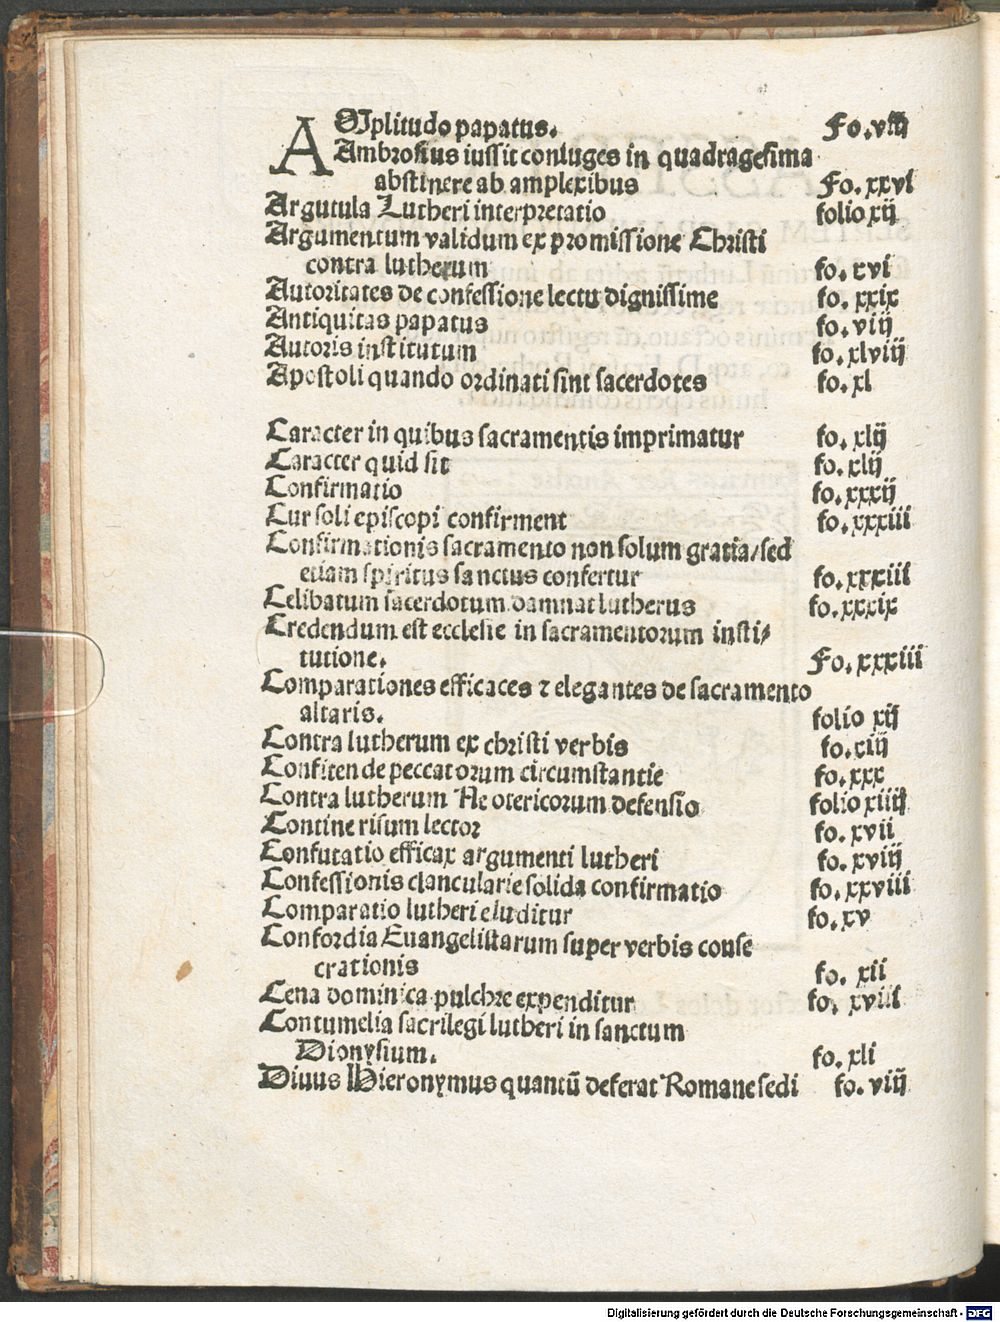 AMplitudo papatus. Fo.viij
Ambrosius iussit coniuges in quadragesima
abstinere ab amplexibus Fo.xxvi
Argutula Lutheri interpretatio folio xij
Argumentum validum ex promissione Christi
contra lutherum fo. xvi
Autoritates de confessione lectu dignissime fo. xxix
Antiquitas papatus fo. viij
Autoris institutum fo. xlviij
Apostoli quando ordinati sint sacerdotes fo. xl
Caracter in quibus sacramentis imprimatur fo. xlij
Caracter quid sit fo. xlij
Confirmatio fo. xxxij
Cur soli episcopi confirment fo. xxxiii
Confirmationis sacramento non solum gratia/sed
etiam spiritus sanctus confertur fo. xxxiii
Celibatum sacerdotum damnat lutherus fo. xxxix
Credendum est ecclesie in sacramentorum insti/
tutione. Fo. xxxiii
Comparationes efficaces ⁊ elegantes de sacramento
altaris. folio xij
Contra lutherum ex christi verbis fo. xiij
Confiten de peccatorum circumstantie fo. xxx
Contra lutherum Neotericorum defensio folio xiiij
Contine risum lector fo. xvii
Confutatio efficax argumenti lutheri fo. xviij
Confessionis clancularie solida confirmatio fo. xxviii
Comparatio lutheri eluditur fo. xv
Confordia Euangelistarum super verbis conse
crationis fo. xii
Cena dominica pulchre expenditur fo. xviii
Contumelia sacrilegi lutheri in sanctum
Dionysium. fo. xli
Diuus Hieronymus quantū deferat Romane sedi fo. viij
Digitalisierung gefördert durch die Deutsche Forschungsgemeinschaft - DFG